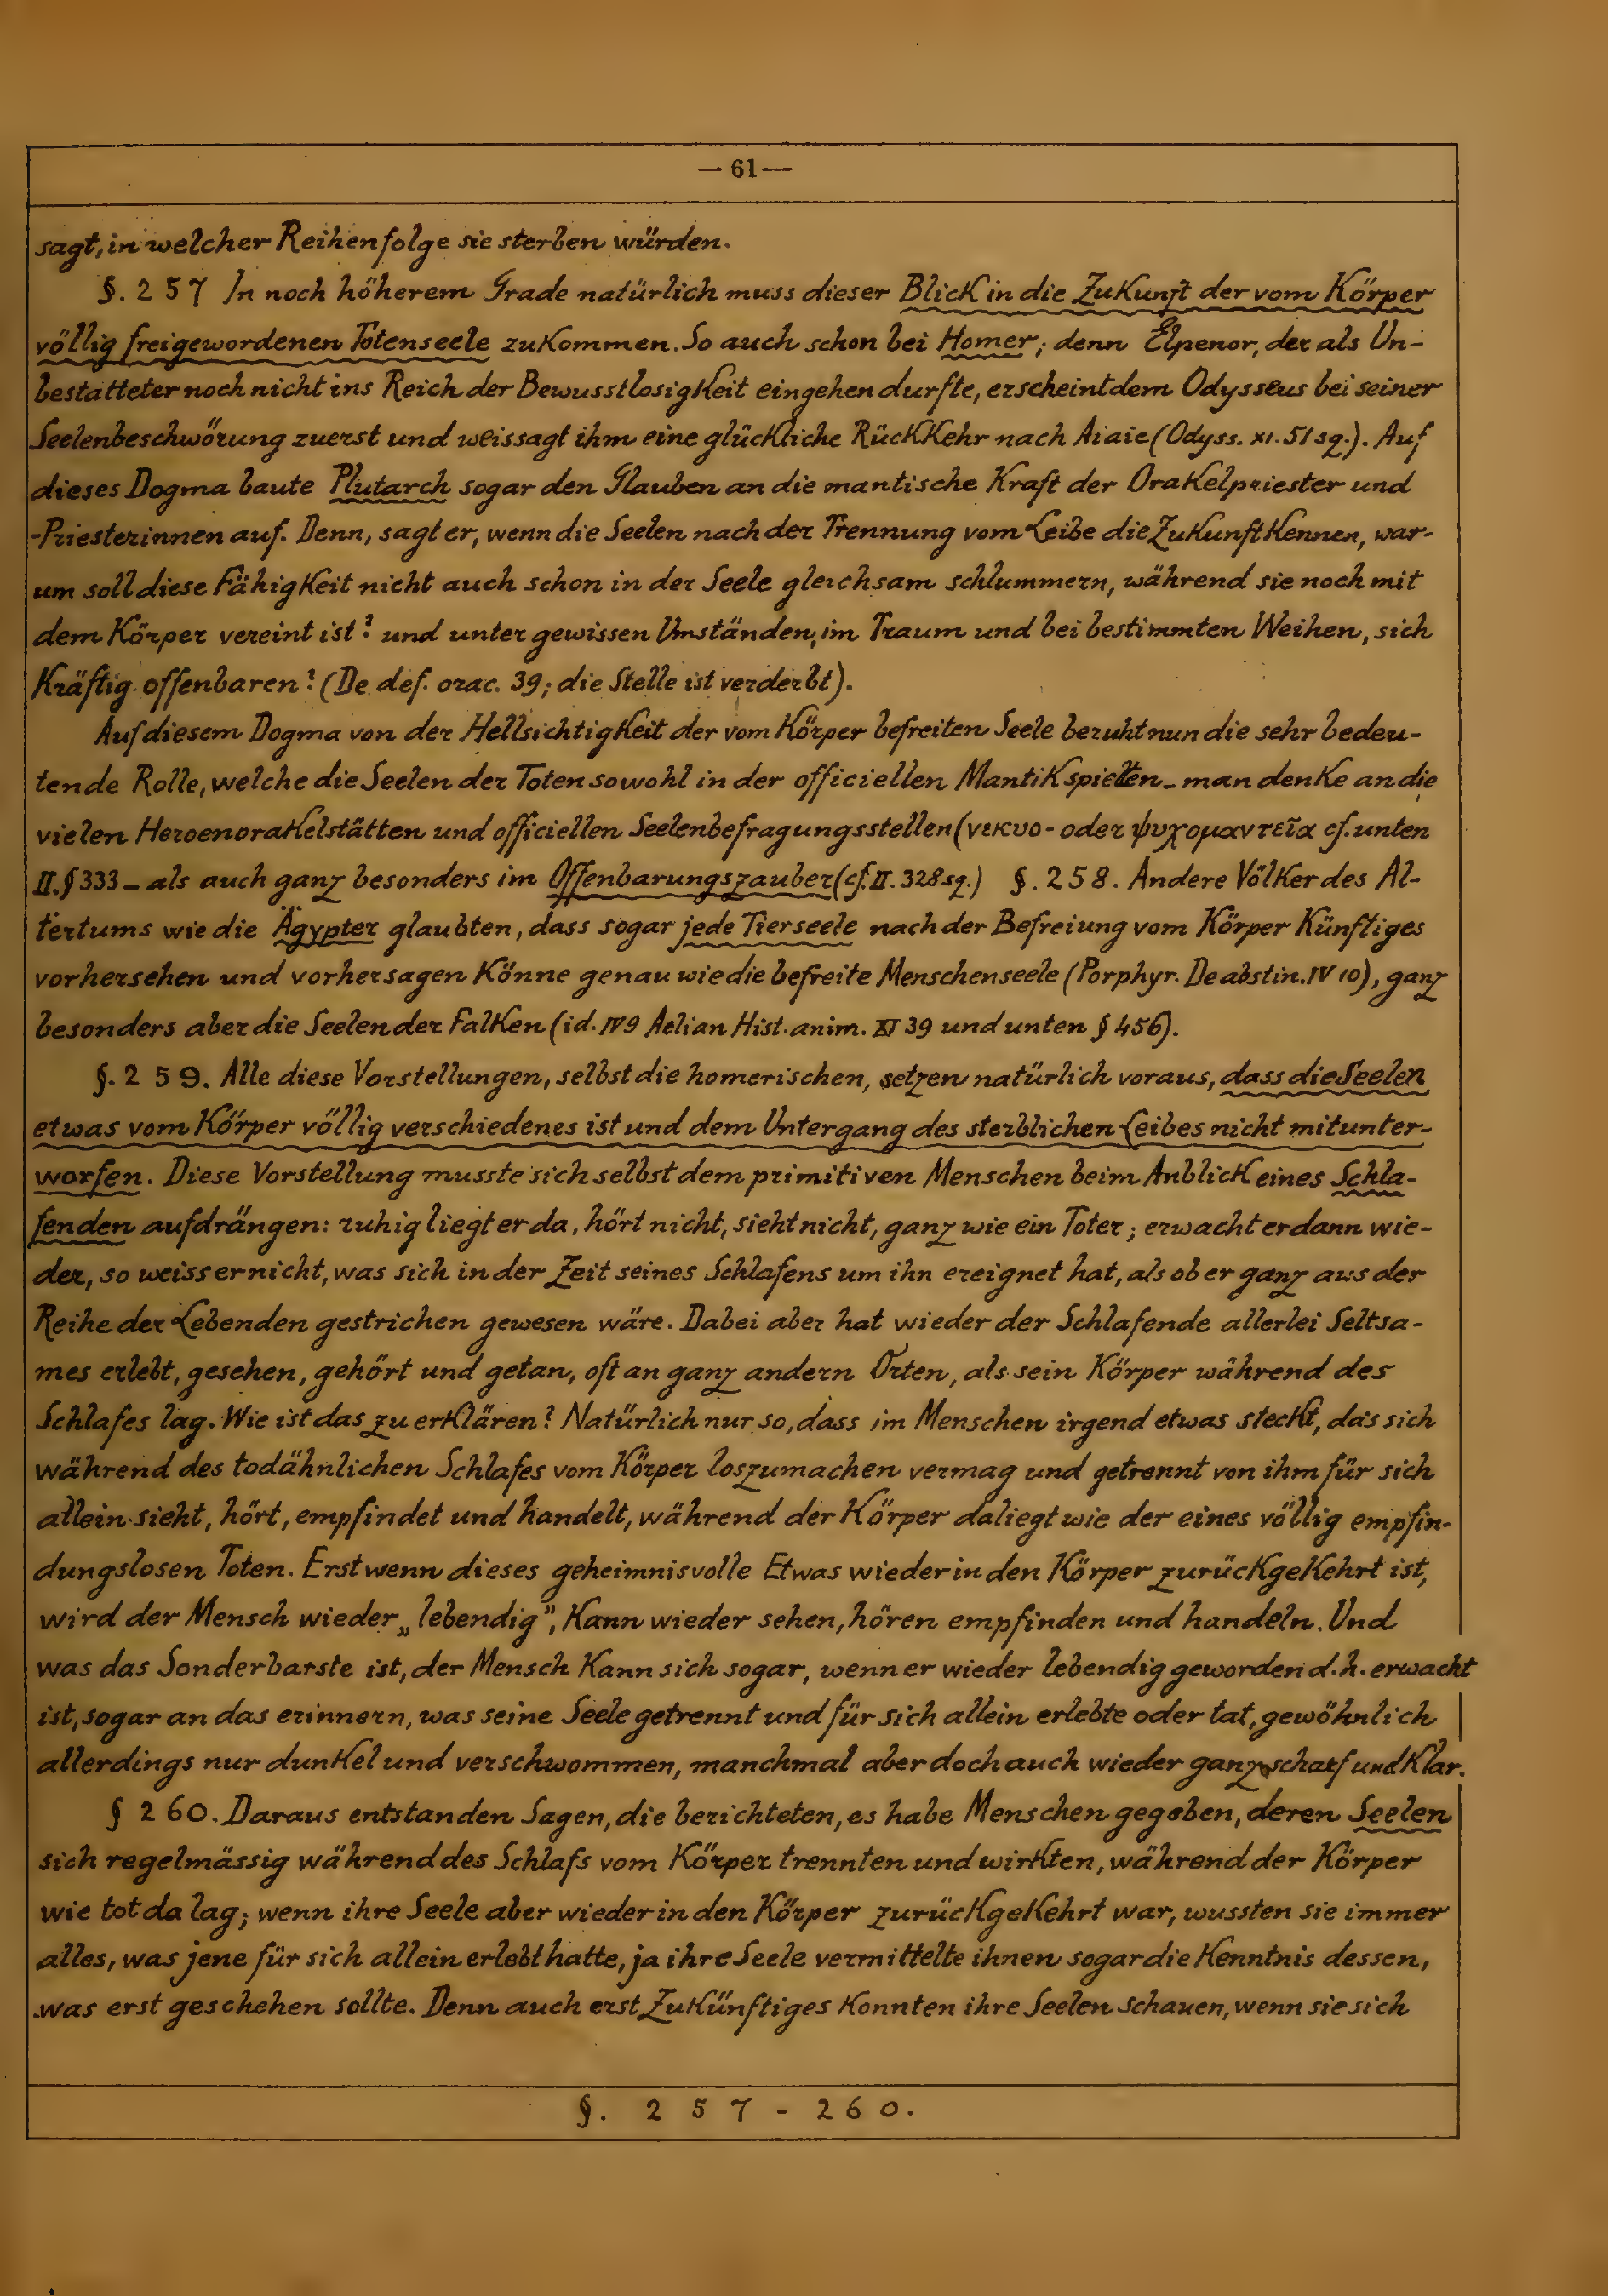 — 61 —
sagt, in welcher Reihenfolge sie sterben würden.
§. 257 In noch höherem Grade natürlich muss dieser Blick in die Zukunft der vom Körper
völlig freigewordenen Totenseele zukommen. So auch schon bei Homer; denn Elpenor, der als Un-
bestatteter noch nicht ins Reich der Bewusstlosigkeit eingehen durfte, erscheint dem Odysseus bei seiner
Seelenbeschwörung zuerst und weissagt ihm eine glückliche Rückkehr nach Aiaie (Odyss. XI. 51 sq.). Auf
dieses Dogma baute Plutarch sogar den Glauben an die mantische Kraft der Orakelpriester und
-Priesterinnen auf. Denn, sagt er, wenn die Seelen nach der Trennung vom Leibe die Zukunft kennen, war-
um soll diese Fähigkeit nicht auch schon in der Seele gleichsam schlummern, während sie noch mit
dem Körper vereint ist? und unter gewissen Umständen, im Traum und bei bestimmten Weihen, sich
kräftig offenbaren? (De def. orac. 39; die Stelle ist verderbt).
Auf diesem Dogma von der Hellsichtigkeit der vom Körper befreiten Seele beruht nun die sehr bedeu-
tende Rolle, welche die Seelen der Toten sowohl in der officiellen Mantik spielten - man denke an die
vielen Heroenorakelstätten und officiellen Seelenbefragungsstellen (νεκυο- oder ψυχομαντεῖα cf. unten
II. § 333 - als auch ganz besonders im Offenbarungszauber (cf. II. 328 sq.) §. 258. Andere Völker des Al-
tertums wie die Ägypter glaubten, dass sogar jede Tierseele nach der Befreiung vom Körper Künftiges
vorhersehen und vorhersagen könne genau wie die befreite Menschenseele (Porphyr. De abstin. IV 10), ganz
besonders aber die Seelen der Falken (id. IV 9 Aelian Hist. anim. XI 39 und unten § 456).
§. 259. Alle diese Vorstellungen, selbst die homerischen, setzen natürlich voraus, dass die Seelen
etwas vom Körper völlig verschiedenes ist und dem Untergang des sterblichen Leibes nicht mitunter-
worfen. Diese Vorstellung musste sich selbst dem primitiven Menschen beim Anblick eines Schla-
fenden aufdrängen: ruhig liegt er da, hört nicht, sieht nicht, ganz wie ein Toter; erwacht er dann wie-
der, so weiss er nicht, was sich in der Zeit seines Schlafens um ihn ereignet hat, als ob er ganz aus der
Reihe der Lebenden gestrichen gewesen wäre. Dabei aber hat wieder der Schlafende allerlei Seltsa-
mes erlebt, gesehen, gehört und getan, oft an ganz andern Orten, als sein Körper während des
Schlafes lag. Wie ist das zu erklären? Natürlich nur so, dass im Menschen irgend etwas steckt, das sich
während des todähnlichen Schlafes vom Körper loszumachen vermag und getrennt von ihm für sich
allein sieht, hört, empfindet und handelt, während der Körper daliegt wie der eines völlig empfin-
dungslosen Toten. Erst wenn dieses geheimnisvolle Etwas wieder in den Körper zurückgekehrt ist,
wird der Mensch wieder „lebendig“, kann wieder sehen, hören empfinden und handeln. Und
was das Sonderbarste ist, der Mensch kann sich sogar, wenn er wieder lebendig geworden d.h. erwacht
ist, sogar an das erinnern, was seine Seele getrennt und für sich allein erlebte oder tat, gewöhnlich
allerdings nur dunkel und verschwommen, manchmal aber doch auch wieder ganz scharf und klar.
§ 260. Daraus entstanden Sagen, die berichteten, es habe Menschen gegeben, deren Seelen
sich regelmässig während des Schlafs vom Körper trennten und wirkten, während der Körper
wie tot da lag; wenn ihre Seele aber wieder in den Körper zurückgekehrt war, wussten sie immer
alles, was jene für sich allein erlebt hatte, ja ihre Seele vermittelte ihnen sogar die Kenntnis dessen,
was erst geschehen sollte. Denn auch erst Zukünftiges konnten ihre Seelen schauen, wenn sie sich
§. 257-260.